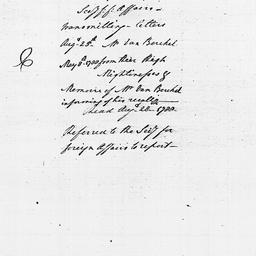 Secy f. Affairs —
transmitting — letters
Augt. 25th. Mr Van Berckel
May 8th. 1788 from their High
Mightinesses &
Memoire of Mr Van Berckel
informing of his recall —
read Augt. 26 — 1788.
Referred to the Secy for
foreign Affairs to report —